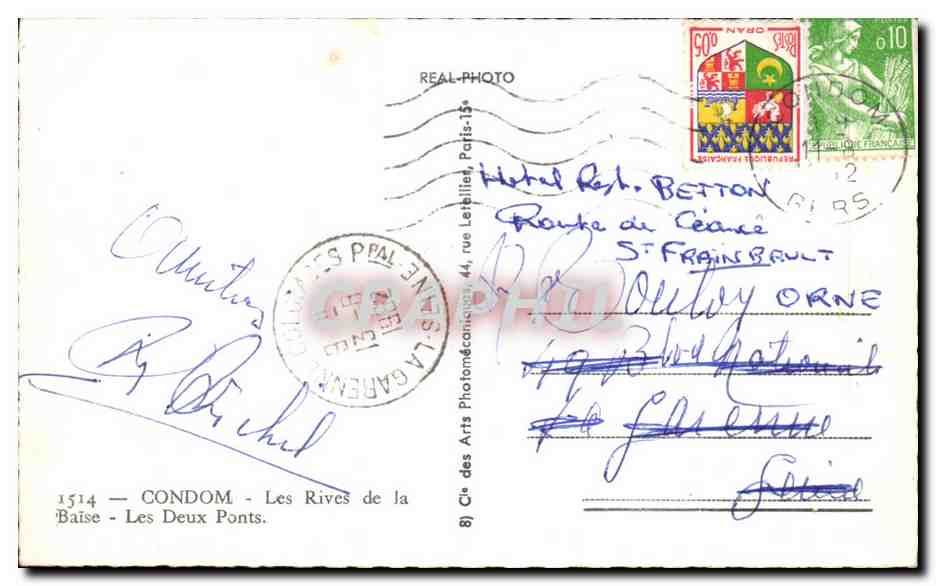 REAL-PHOTO
POSTES
ORAN
0,05
REPUBLIQUE FRANÇAISE
POSTES
0,10
REPUBLIQUE FRANÇAISE
CONDOM
GERS
Hotel Rest. BETTON
Route de Céaucé
St FRAINBAULT
ORNE
49 Bvd National
La Garenne
Seine
Amitiés
LA GARENNE-COLOMBES PPAL
SEINE
1962
CARPHIL
8) Cie des Arts Photomécaniques, 44, rue Letellier, Paris-15e
1514 — CONDOM - Les Rives de la
Baïse - Les Deux Ponts.